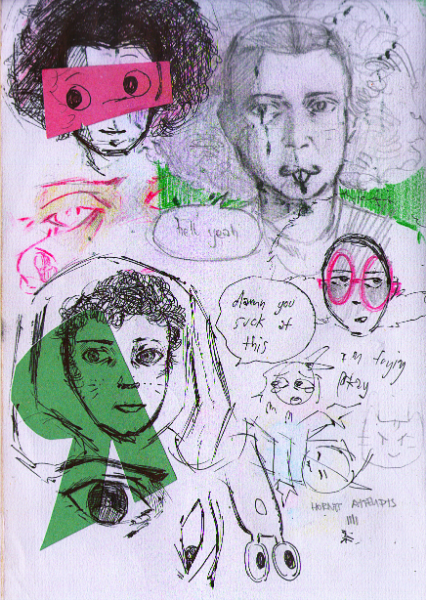 hell yeah
damn you
suck at
this
i'm trying
okay
HORNET ATTEMPTS